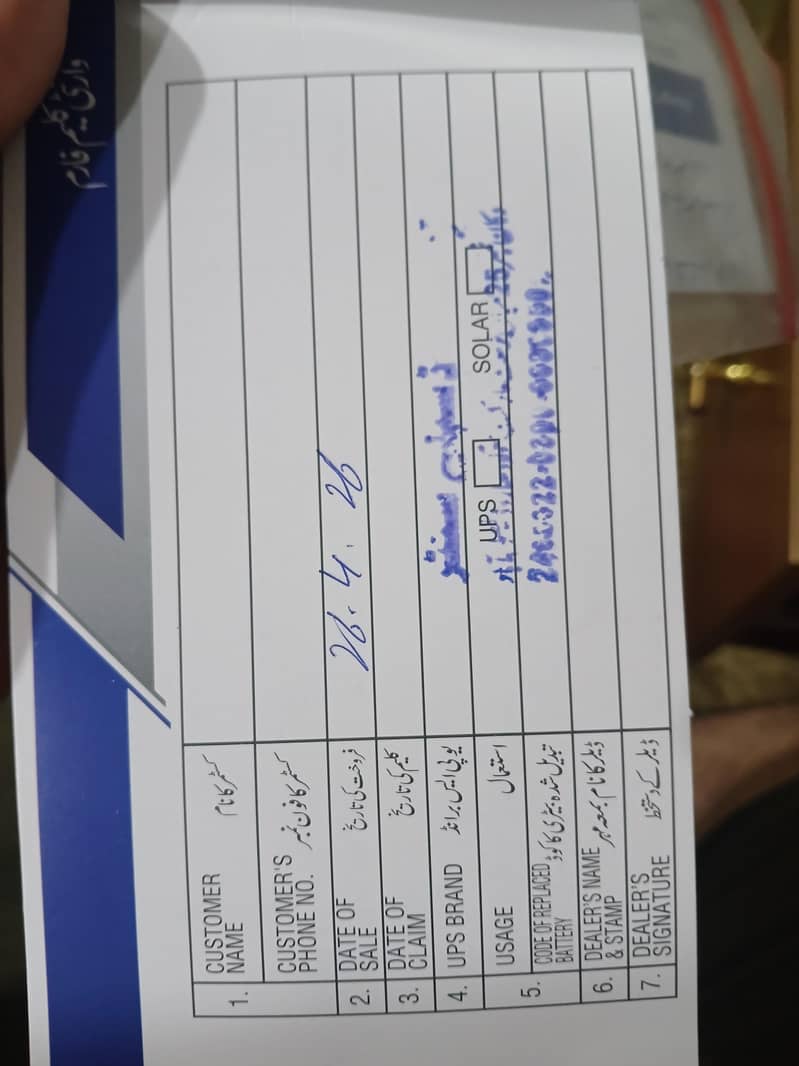 وارنٹی کلیم فارم
1. CUSTOMER NAME کسٹمر کا نام
CUSTOMER'S PHONE NO. کسٹمر کا فون نمبر
2. DATE OF SALE فروخت کی تاریخ 28.4.26
3. DATE OF CLAIM کلیم کی تاریخ
4. UPS BRAND یو پی ایس برانڈ
USAGE استعمال UPS SOLAR
5. CODE OF REPLACED BATTERY تبدیل شدہ بیٹری کا کوڈ
6. DEALER'S NAME & STAMP ڈیلر کا نام بمعہ مہر
7. DEALER'S SIGNATURE ڈیلر کے دستخط